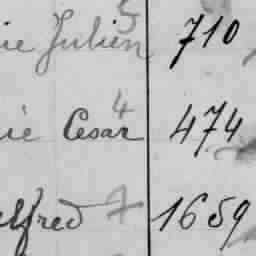 ie Julien 5 710
ie Cesar 4 474
lfred 7 1659